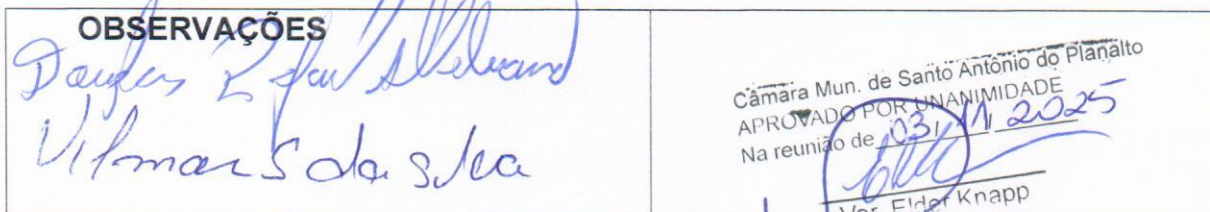 OBSERVAÇÕES
Douglas Rafael
Vilmar S da Silva
Câmara Mun. de Santo Antônio do Planalto
APROVADO POR UNANIMIDADE
Na reunião de 03/11/2025
Ver. Elder Knapp